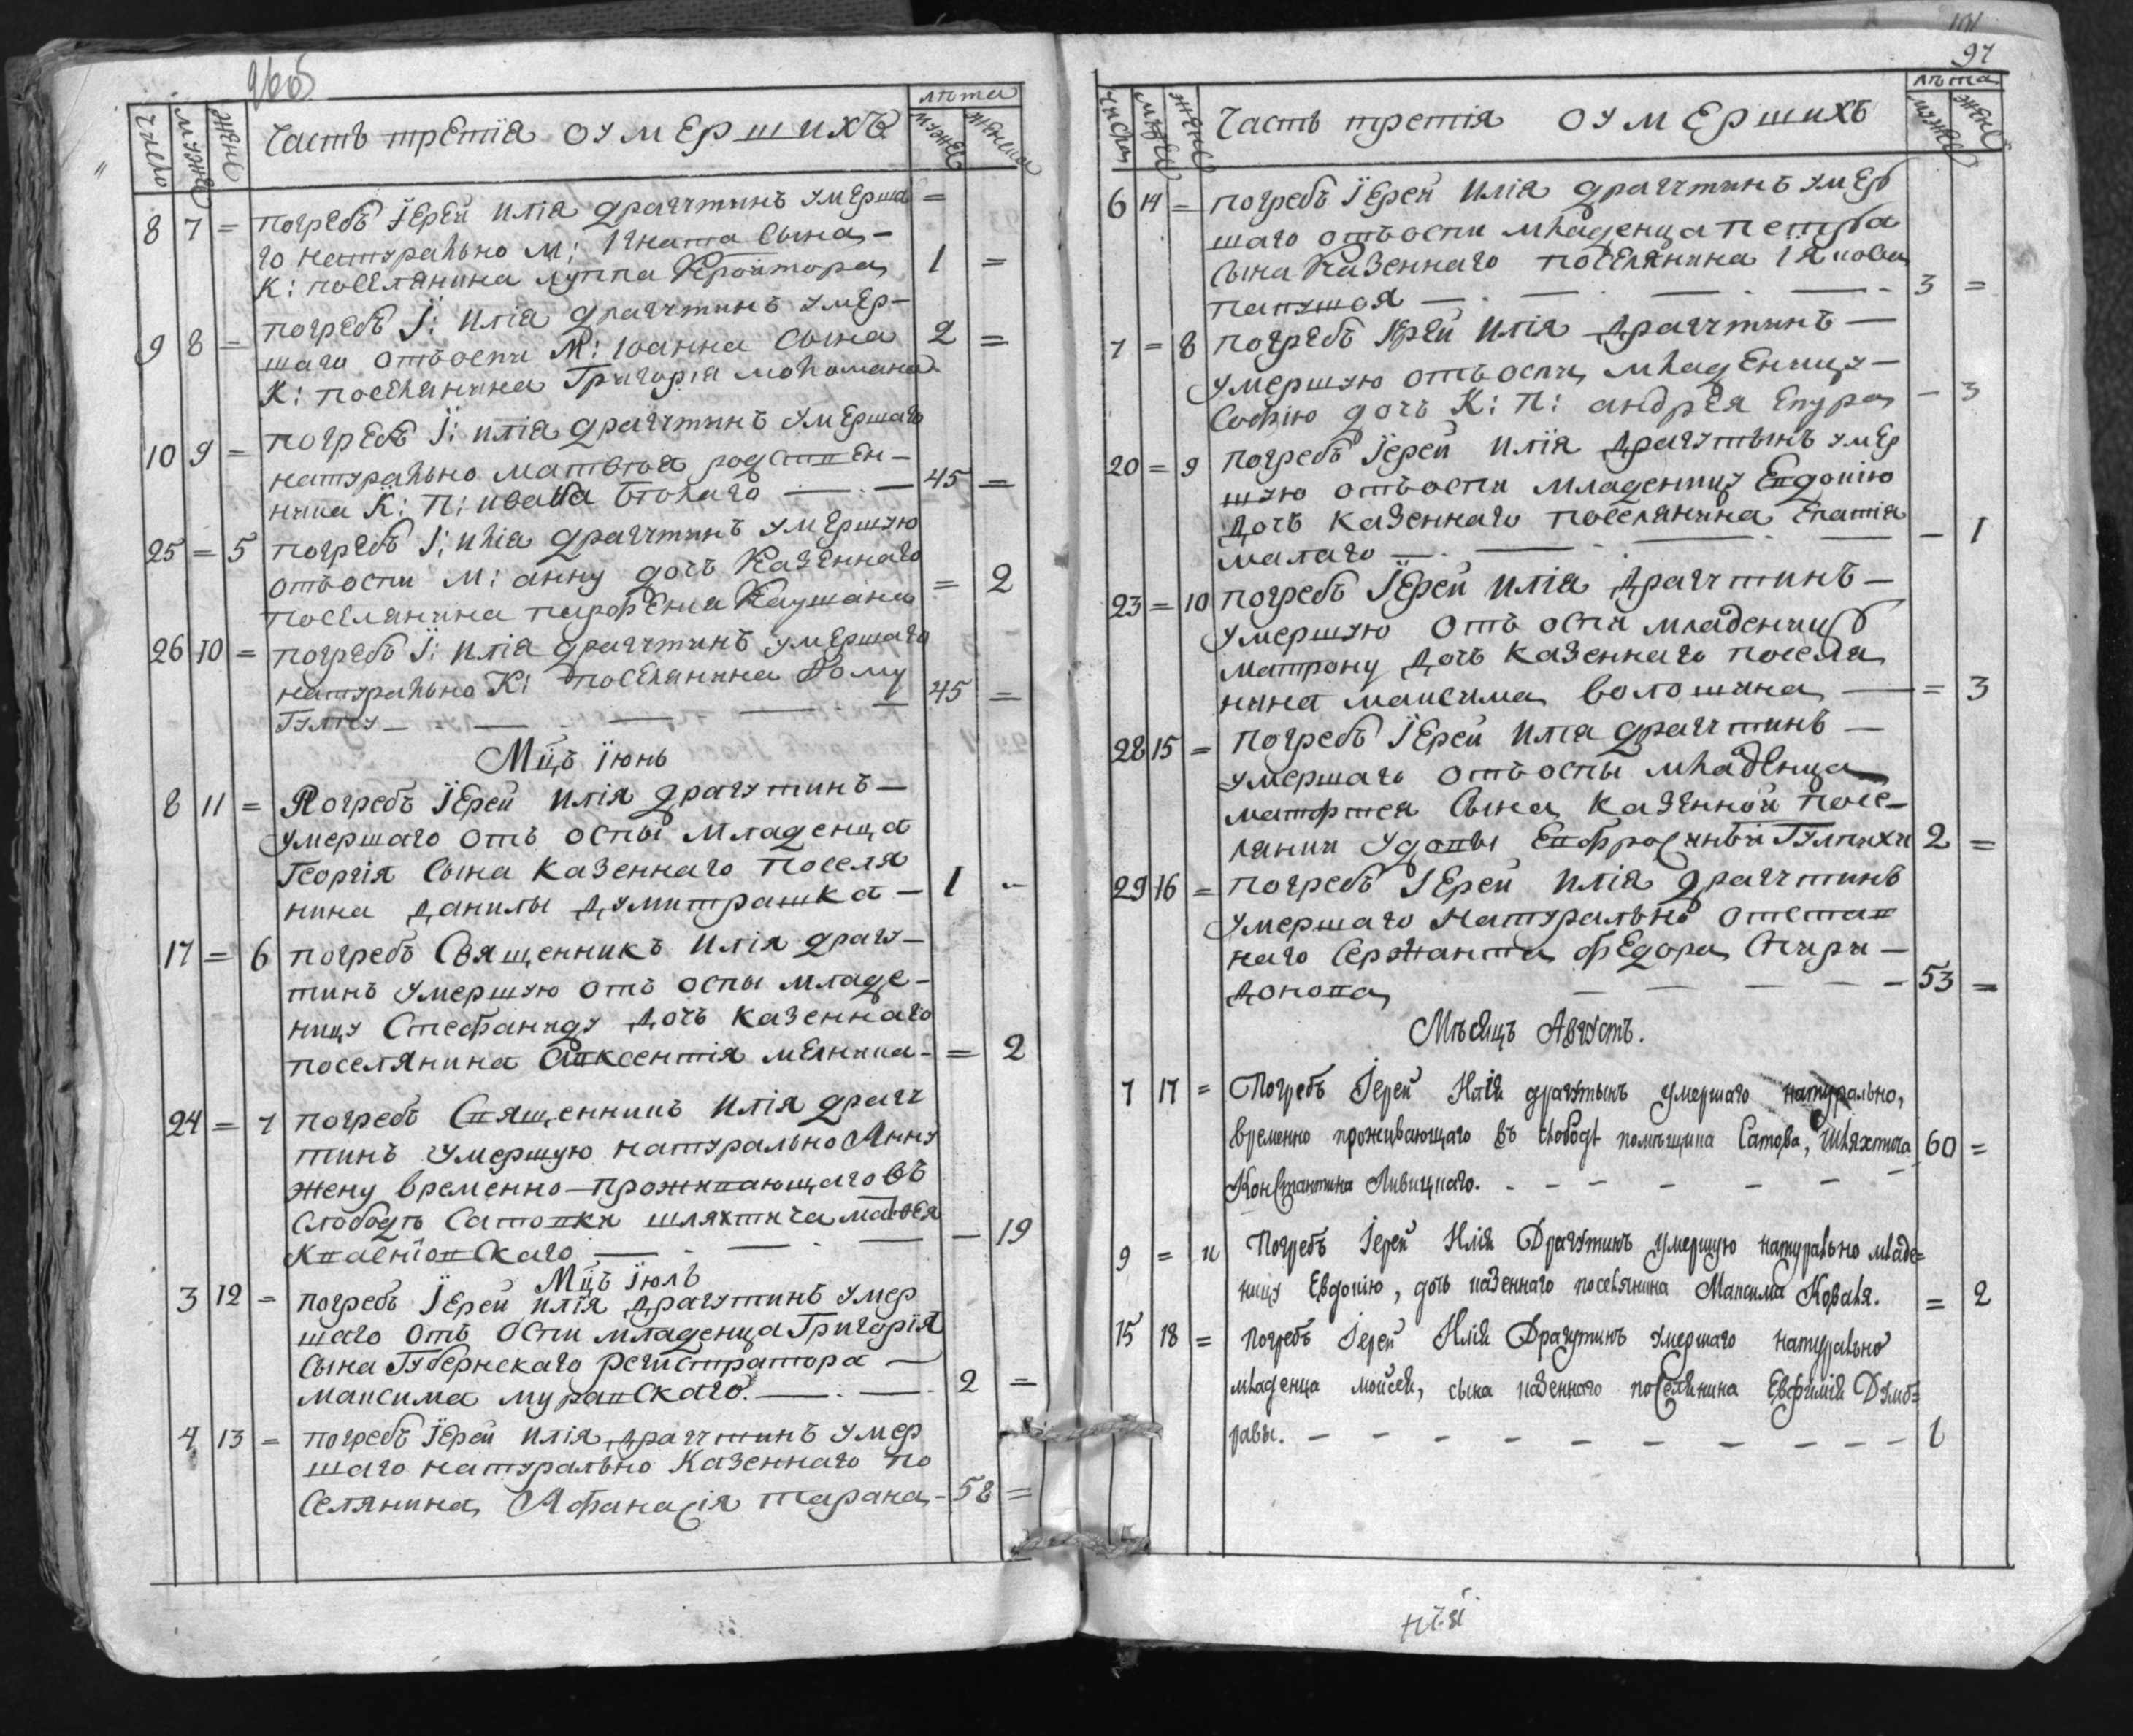 96об
число мужей женс Часть третія о умершихъ лѣта мужес женска
8 7 = погребъ Іерей Илія Драгутинъ умерша =
го натурально м: Игната сына –
К: поселянина Луппа Кройтора 1 =
9 8 = погребъ І: Илія Драгутинъ умер–
шаго отъ оспи М: Іоанна сына 2 =
К: поселянина Григорія Моломана
10 9 = погребъ І: Илія Драгутинъ умершаго
натурально Матвѣя родствен–
ника К: П: Ивана Бѣлаго — 45 =
25 = 5 погребъ І: Илія Драгутинъ умершую
отъ оспи м: Анну дочь Казеннаго
поселянина Парфенія Каушана = 2
26 10 = погребъ І: Илія Драгутинъ умершаго
натурально К: поселянина Фому
Гулту — — — 45 =
Мцъ Іюнь
8 11 = Погребъ Іерей Илія Драгутинъ —
умершаго отъ оспы младенца
Георгія сына казеннаго поселя
нина Данилы Думитрашка — 1 =
17 = 6 погребъ Священникъ Илія Драгу–
тинъ умершую отъ оспы младе–
ницу Стефаниду дочь казеннаго
поселянина Авксентія Мелника – = 2
24 = 7 погребъ Священникъ Илія Драгу
тинъ умершую натурально Анну
жену временно – проживающаго въ
слободѣ Сатовки шляхтича Матвѣя
Квасніовскаго — — — – 19
Мцъ Іюль
3 12 = погребъ Іерей Илія Драгутинъ умер
шаго отъ оспи младенца Григорія
сына Губернскаго регистратора —
Максима Муравскаго. — — 2 =
4 13 = погребъ Іерей Илія Драгутинъ умер
шаго натурально Казеннаго по
селянина Афанасія Тарана – 58 =
101
97
число мужей женс Часть третія о умершихъ лѣта мужей женей
6 14 = погребъ Іерей Илія Драгутинъ умер
шаго отъ оспи младенца Петра
сына Казеннаго поселянина Іякова
Папушоя — — — — 3 =
7 = 8 погребъ Іерей Илія Драгутинъ —
умершую отъ оспи младеницу —
Софію дочь К: П: Андрея Епура – 3
20 = 9 погребъ Іерей Илія Драгутынъ умер
шую отъ оспи младеницу Евдокію
дочь казеннаго поселянина Епатія
Малаго — — — — – 1
23 = 10 погребъ Іерей Илія Драгутинъ —
умершую отъ оспи младеницу
Матрону дочь казеннаго поселя
нина Максима Волошина — = 3
28 15 = погребъ Іерей Илія Драгутинъ —
умершаго отъ оспы младенца
Матфтея сына казенной посе–
лянки удовы Евфросиньи Гултихи 2 =
29 16 = погребъ Іерей Илія Драгутинъ
умершаго натурально отстав
наго Сержанта Федора Спири —
донова — — — — — 53 =
Мѣсяцъ Августъ.
7 17 = Погребъ Іерей Илія Драгутынъ умершаго натурально,
временно проживающаго въ слободѣ помѣщика Сатова, шляхтича 60 =
Константина Ливицкаго. - - - - - -
9 = 11 Погребъ Іерей Илія Драгутинъ умершую натурально младе=
ницу Евдокію, дочь казеннаго поселянина Максима Коваля. = 2
15 18 = Погребъ Іерей Илія Драгутинъ умершаго натурально
младенца Мойсея, сына казеннаго поселянина Евфимія Думб=
равы. - - - - - - - - - 1